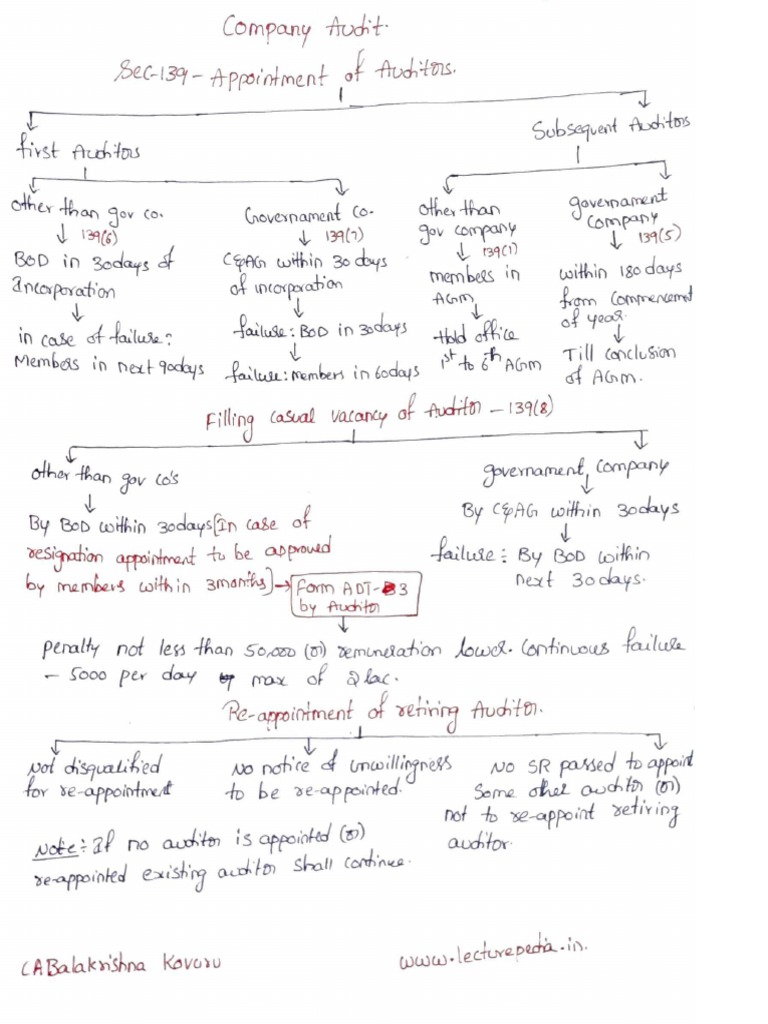 Company Audit.
Sec-139 - Appointment of Auditors.
first Auditors
Subsequent Auditors
other than gov co.
139(6)
BOD in 30days of
Incorporation
in case of failure:
Members in next 90days
Governament Co.
139(7)
C&AG within 30 days
of incorporation
failure: BOD in 30days
failure: members in 60days
other than
gov company
139(1)
members in
AGM
Hold office
1st to 6th AGM
governament
company
139(5)
within 180 days
from commencement
of year.
Till conclusion
of AGM.
Filling casual vacancy of Auditor - 139(8)
other than gov co's
By BOD within 30days [In case of
resignation appointment to be approved
by members within 3months]
Form ADT-3
by Auditor
governament company
By C&AG within 30days
failure: By BOD within
next 30 days.
penalty not less than 50,000 (or) remuneration lower. Continuous failure
- 5000 per day max of 2 lac.
Re-appointment of retiring Auditor.
Not disqualified
for re-appointment
No notice of unwillingness
to be re-appointed.
No SR passed to appoint
Some other auditor (or)
not to re-appoint retiring
auditor.
Note: If no auditor is appointed (or)
re-appointed existing auditor shall continue.
CABalakrishna Kovuru
www.lecturepedia.in.